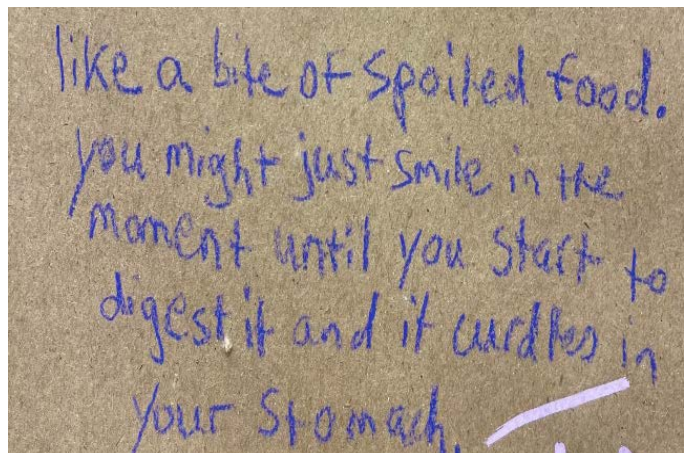 like a bite of spoiled food.
you might just smile in the
moment until you start to
digest it and it curdles in
your stomach.